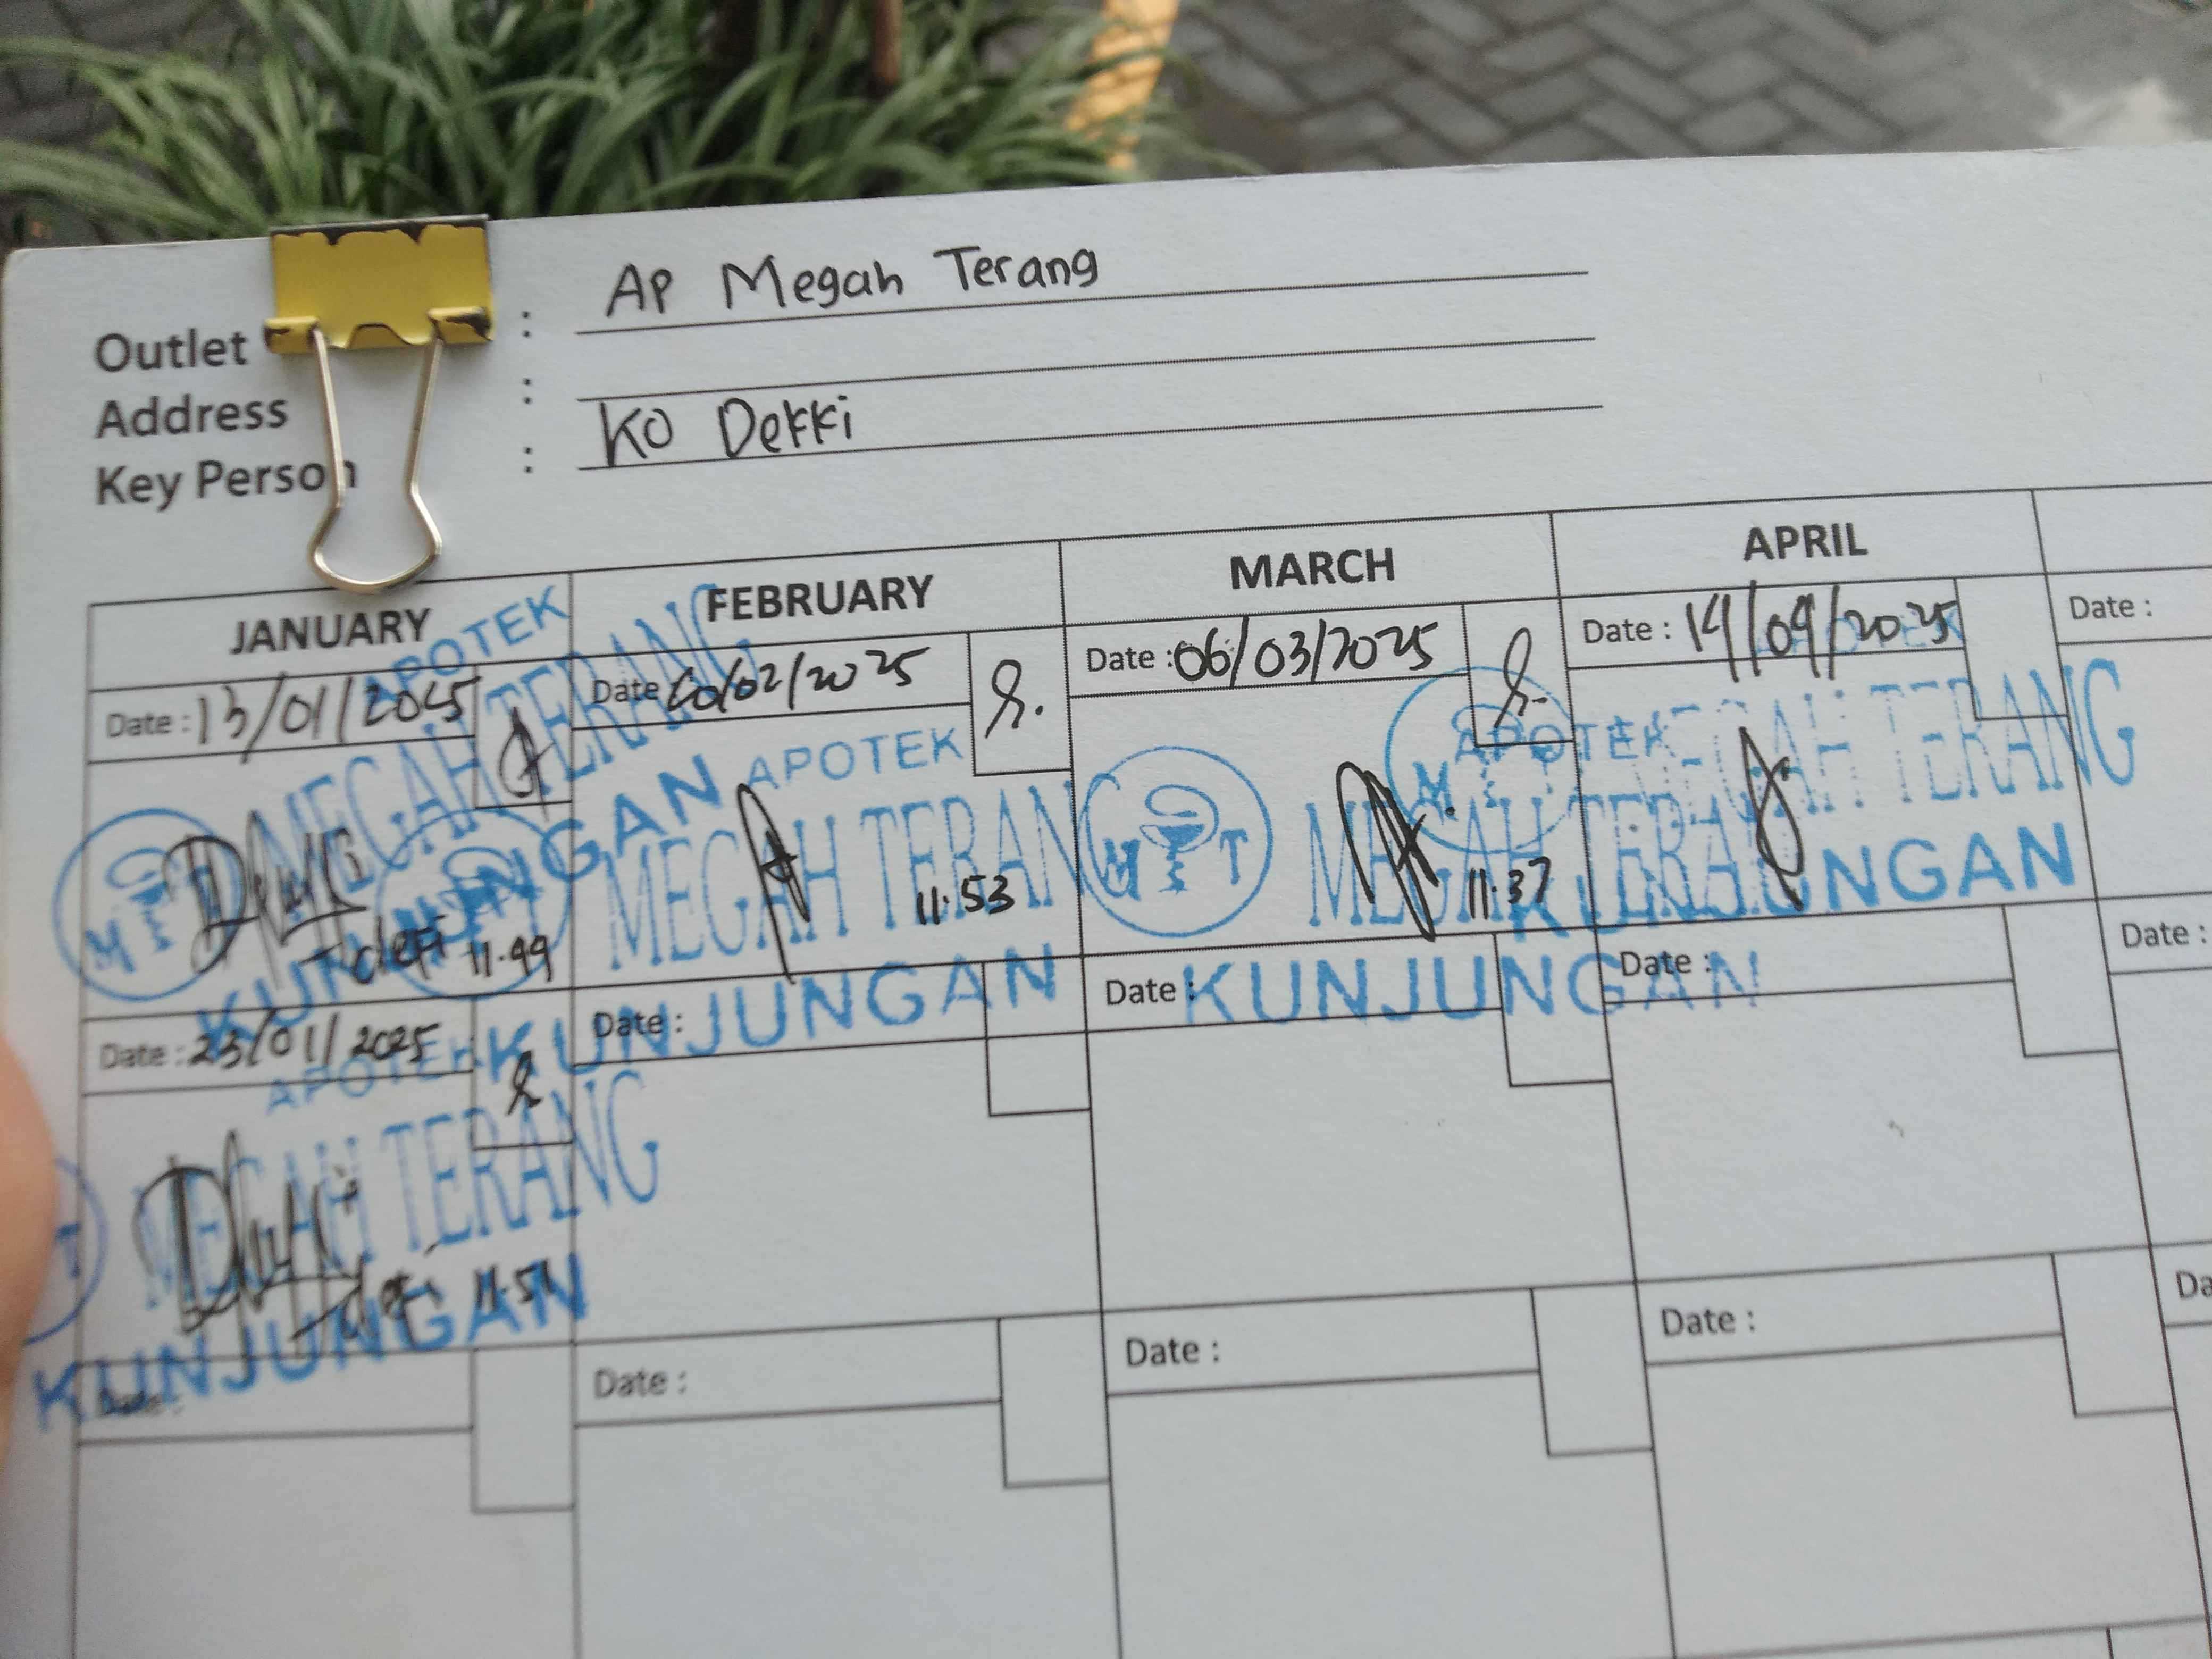 Outlet : AP Megah Terang
Address :
Key Person : KO Dekki
JANUARY FEBRUARY MARCH APRIL
Date : 13/01/2025
Date /02/2025
Date : 06/03/2025
Date : 14/04/2025
Date :
APOTEK
MEGAH TERANG
KUNJUNGAN
M T
APOTEK
MEGAH TERANG
KUNJUNGAN
11.53
M T
APOTEK
MEGAH TERANG
KUNJUNGAN
11.37
M
APOTEK
MEGAH TERANG
KUNJUNGAN
11.44
Date : 23/01/2025
Date :
Date :
Date :
Date :
APOTEK
MEGAH TERANG
KUNJUNGAN
T
Date :
Date :
Date :
Date :
Da